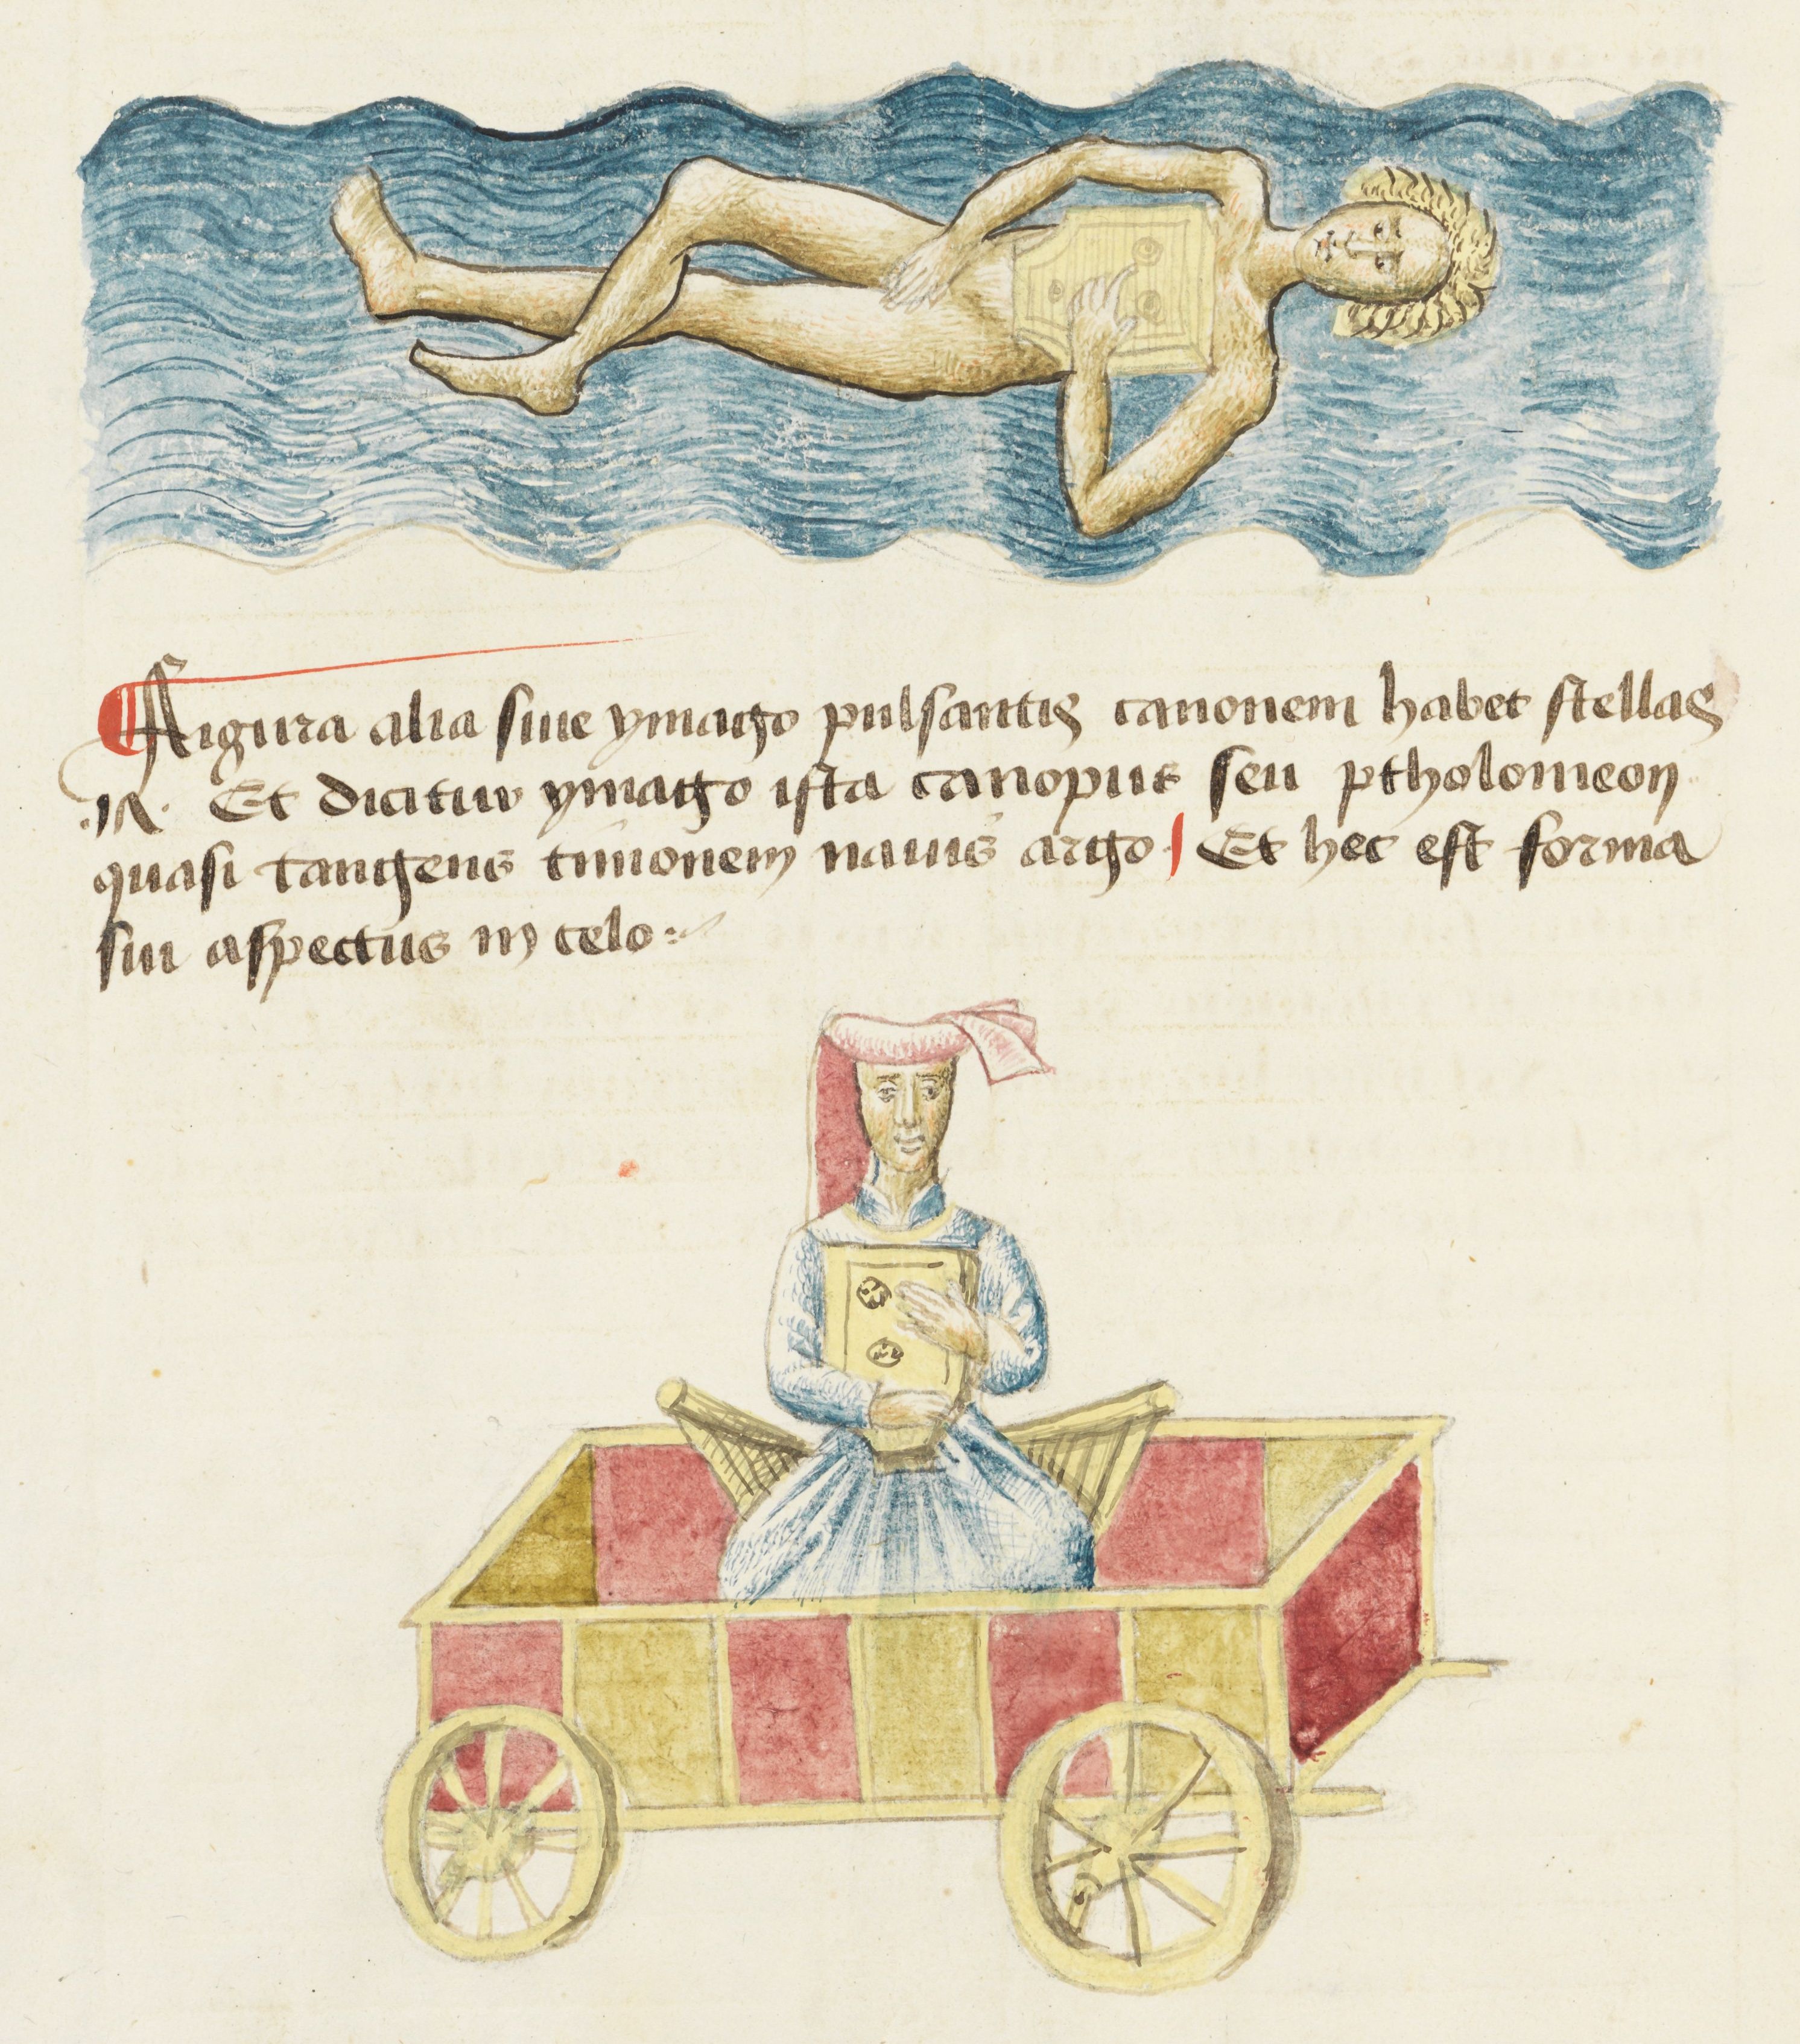 ¶ Figura alia siue ymago pulsantis canonem habet stellas
.ix. Et dicitur ymago ista canopus seu ptholomeon
quasi tangens timonem nauis argo. Et hec est forma
sui aspectus in celo :~